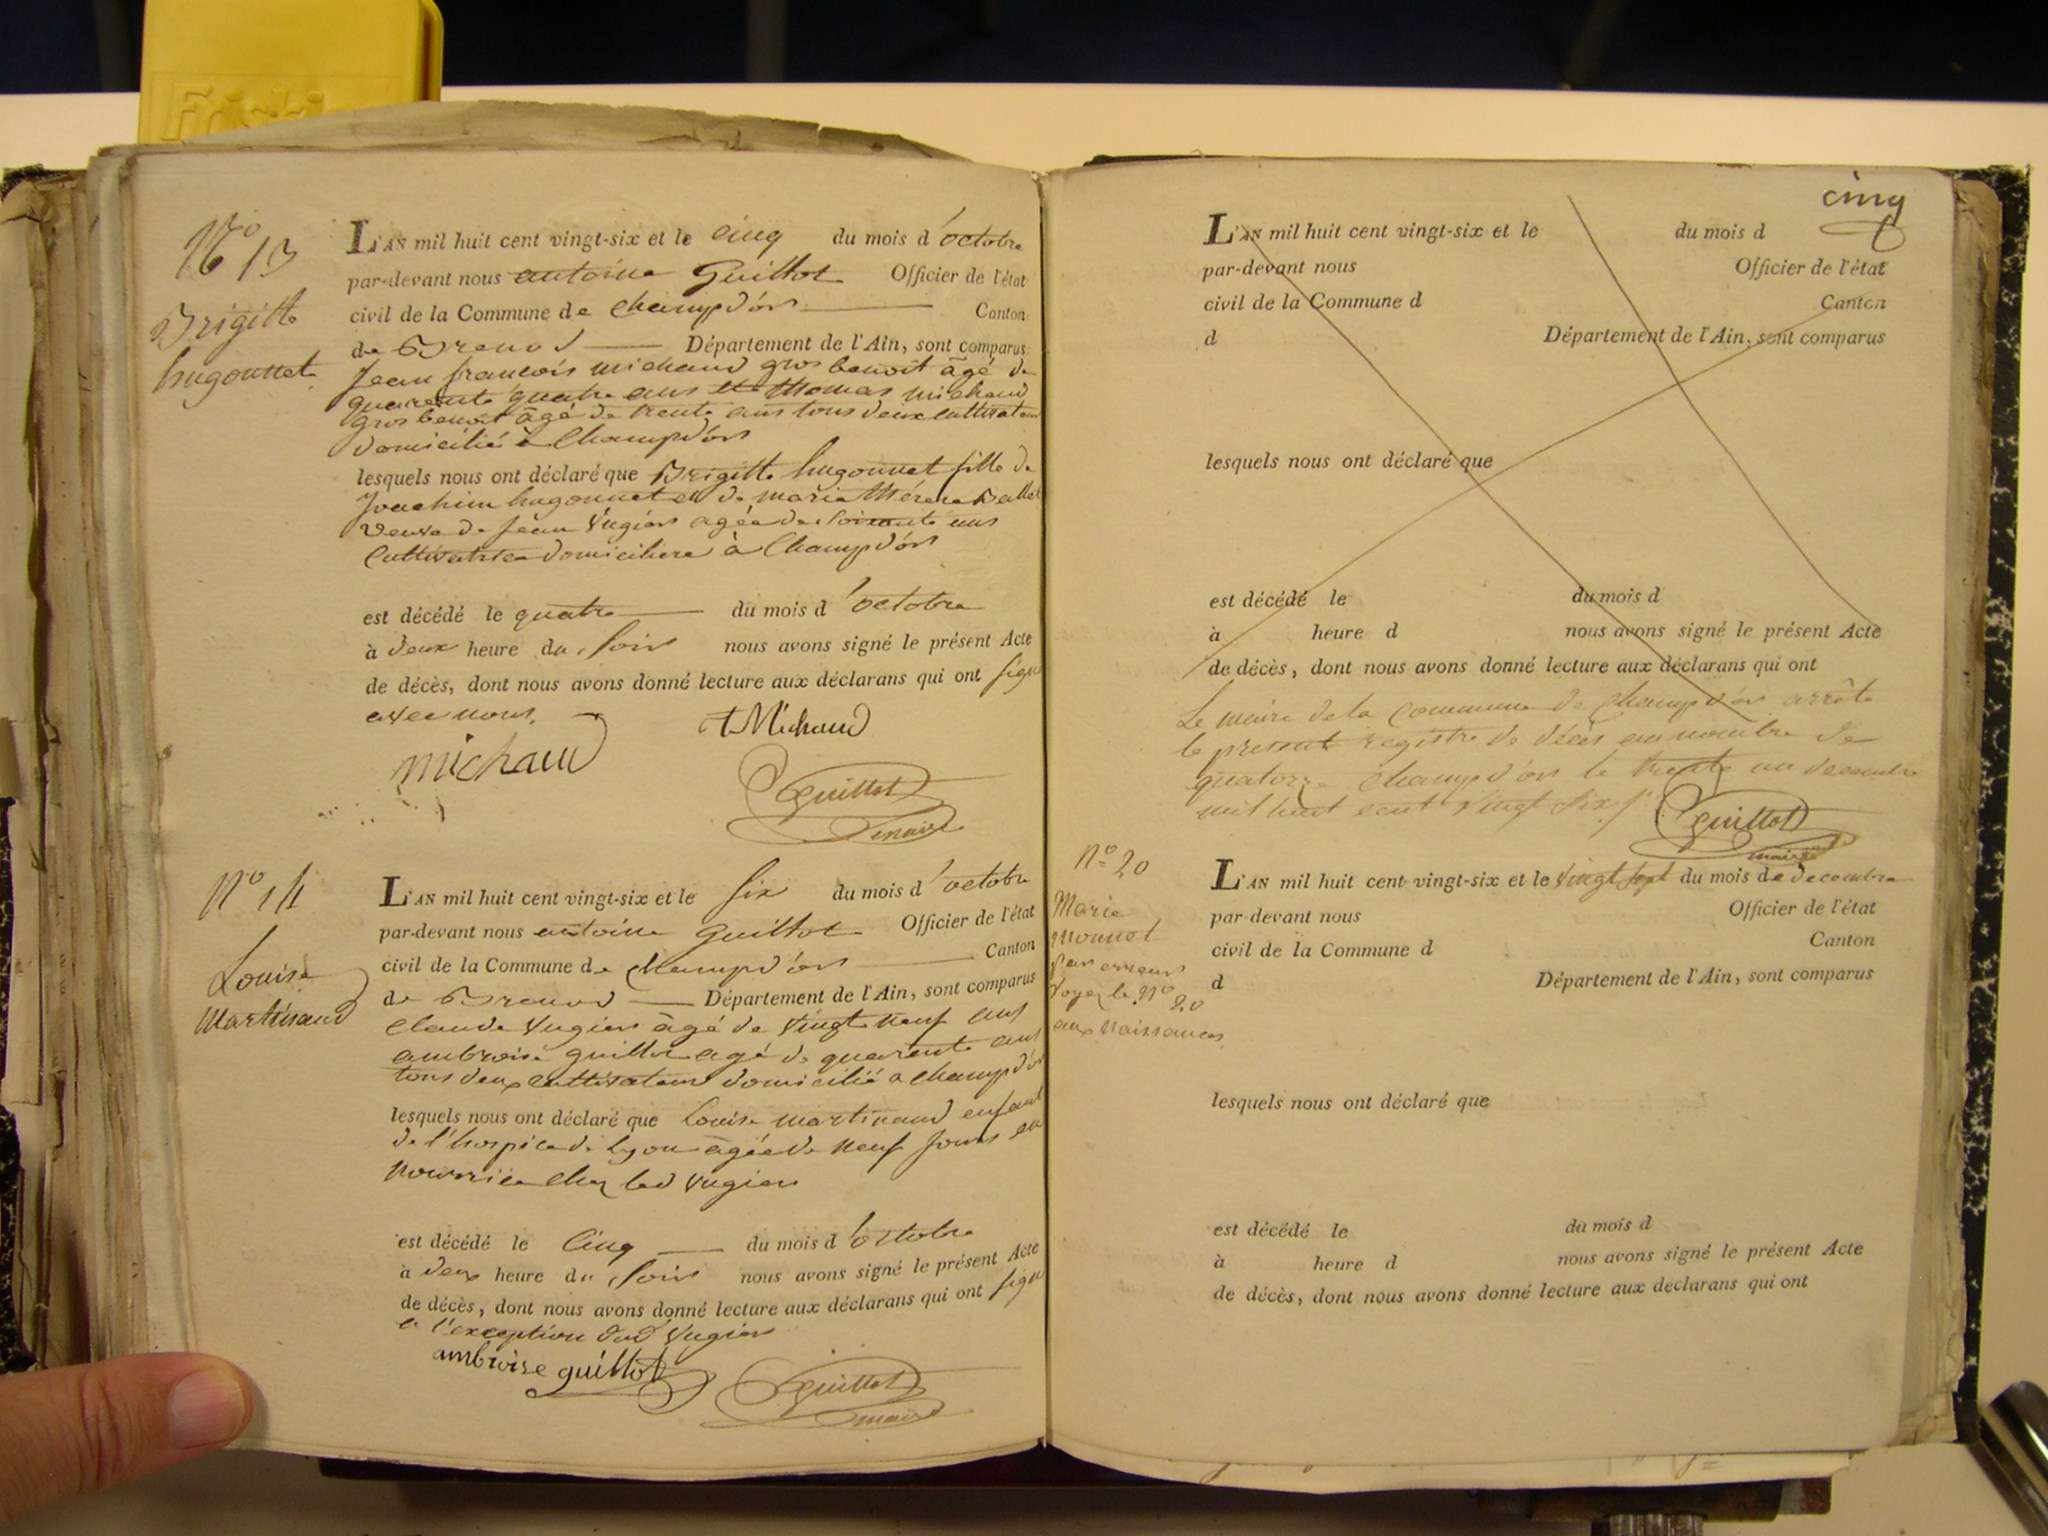 N° 13
Brigitte
hugonnet
L'AN mil huit cent vingt-six et le cinq du mois d'octobre
par-devant nous antoine Guillot Officier de l'état
civil de la Commune de Champd'or Canton
de Brenod Département de l'Ain, sont comparus
Jean françois michaud gros benoit âgé de
quarente quatre ans et thomas michaud
gros benoit âgé de trente ans tous deux cultivateur
domicilié à Champd'or
lesquels nous ont déclaré que Brigitte hugonnet fille de
Joachim hugonnet et de marie thérese Ballet
veuve de jean Vugier agée de soixante ans
Cultivatrice domiciliére à Champd'or
est décédé le quatre du mois d'octobre
à deux heure du soir nous avons signé le présent Acte
de décès, dont nous avons donné lecture aux déclarans qui ont signé
avec nous.
michaud
t Michaud
Guillot
maire
N° 14
Louise
Martinaud
L'AN mil huit cent vingt-six et le six du mois d'octobre
par-devant nous antoine Guillot Officier de l'état
civil de la Commune de Champd'or Canton
de Brenod Département de l'Ain, sont comparus
Claude Vugier âgé de vingt neuf ans
ambroise guillot agé de quarente ans
tous deux cultivateur domicilié a Champd'or
lesquels nous ont déclaré que Louise martinaud enfant
de l'hospice de Lyon âgée de neuf jours en
nourrice chez led Vugier
est décédé le Cinq du mois d'octobre
à deux heure du soir nous avons signé le présent Acte
de décès, dont nous avons donné lecture aux déclarans qui ont signé
a l'exception dud Vugier
ambroise guillot
Guillot
maire
cinq
L'AN mil huit cent vingt-six et le du mois d
par-devant nous Officier de l'état
civil de la Commune d Canton
d Département de l'Ain, sont comparus
lesquels nous ont déclaré que
est décédé le du mois d
à heure d nous avons signé le présent Acte
de décès, dont nous avons donné lecture aux déclarans qui ont
Le maire de la commune de Champd'or arrête
le present registre de décès au nombre de
quatorze Champd'or le trente un decembre
mil huit cent vingt six
Guillot
maire
N° 20
Marie
Monnet
par erreur
Voyez le N°
20
aux Naissances
L'AN mil huit cent vingt-six et le vingt sept du mois de decembre
par-devant nous Officier de l'état
civil de la Commune d Canton
d Département de l'Ain, sont comparus
lesquels nous ont déclaré que
est décédé le du mois d
à heure d nous avons signé le présent Acte
de décès, dont nous avons donné lecture aux déclarans qui ont